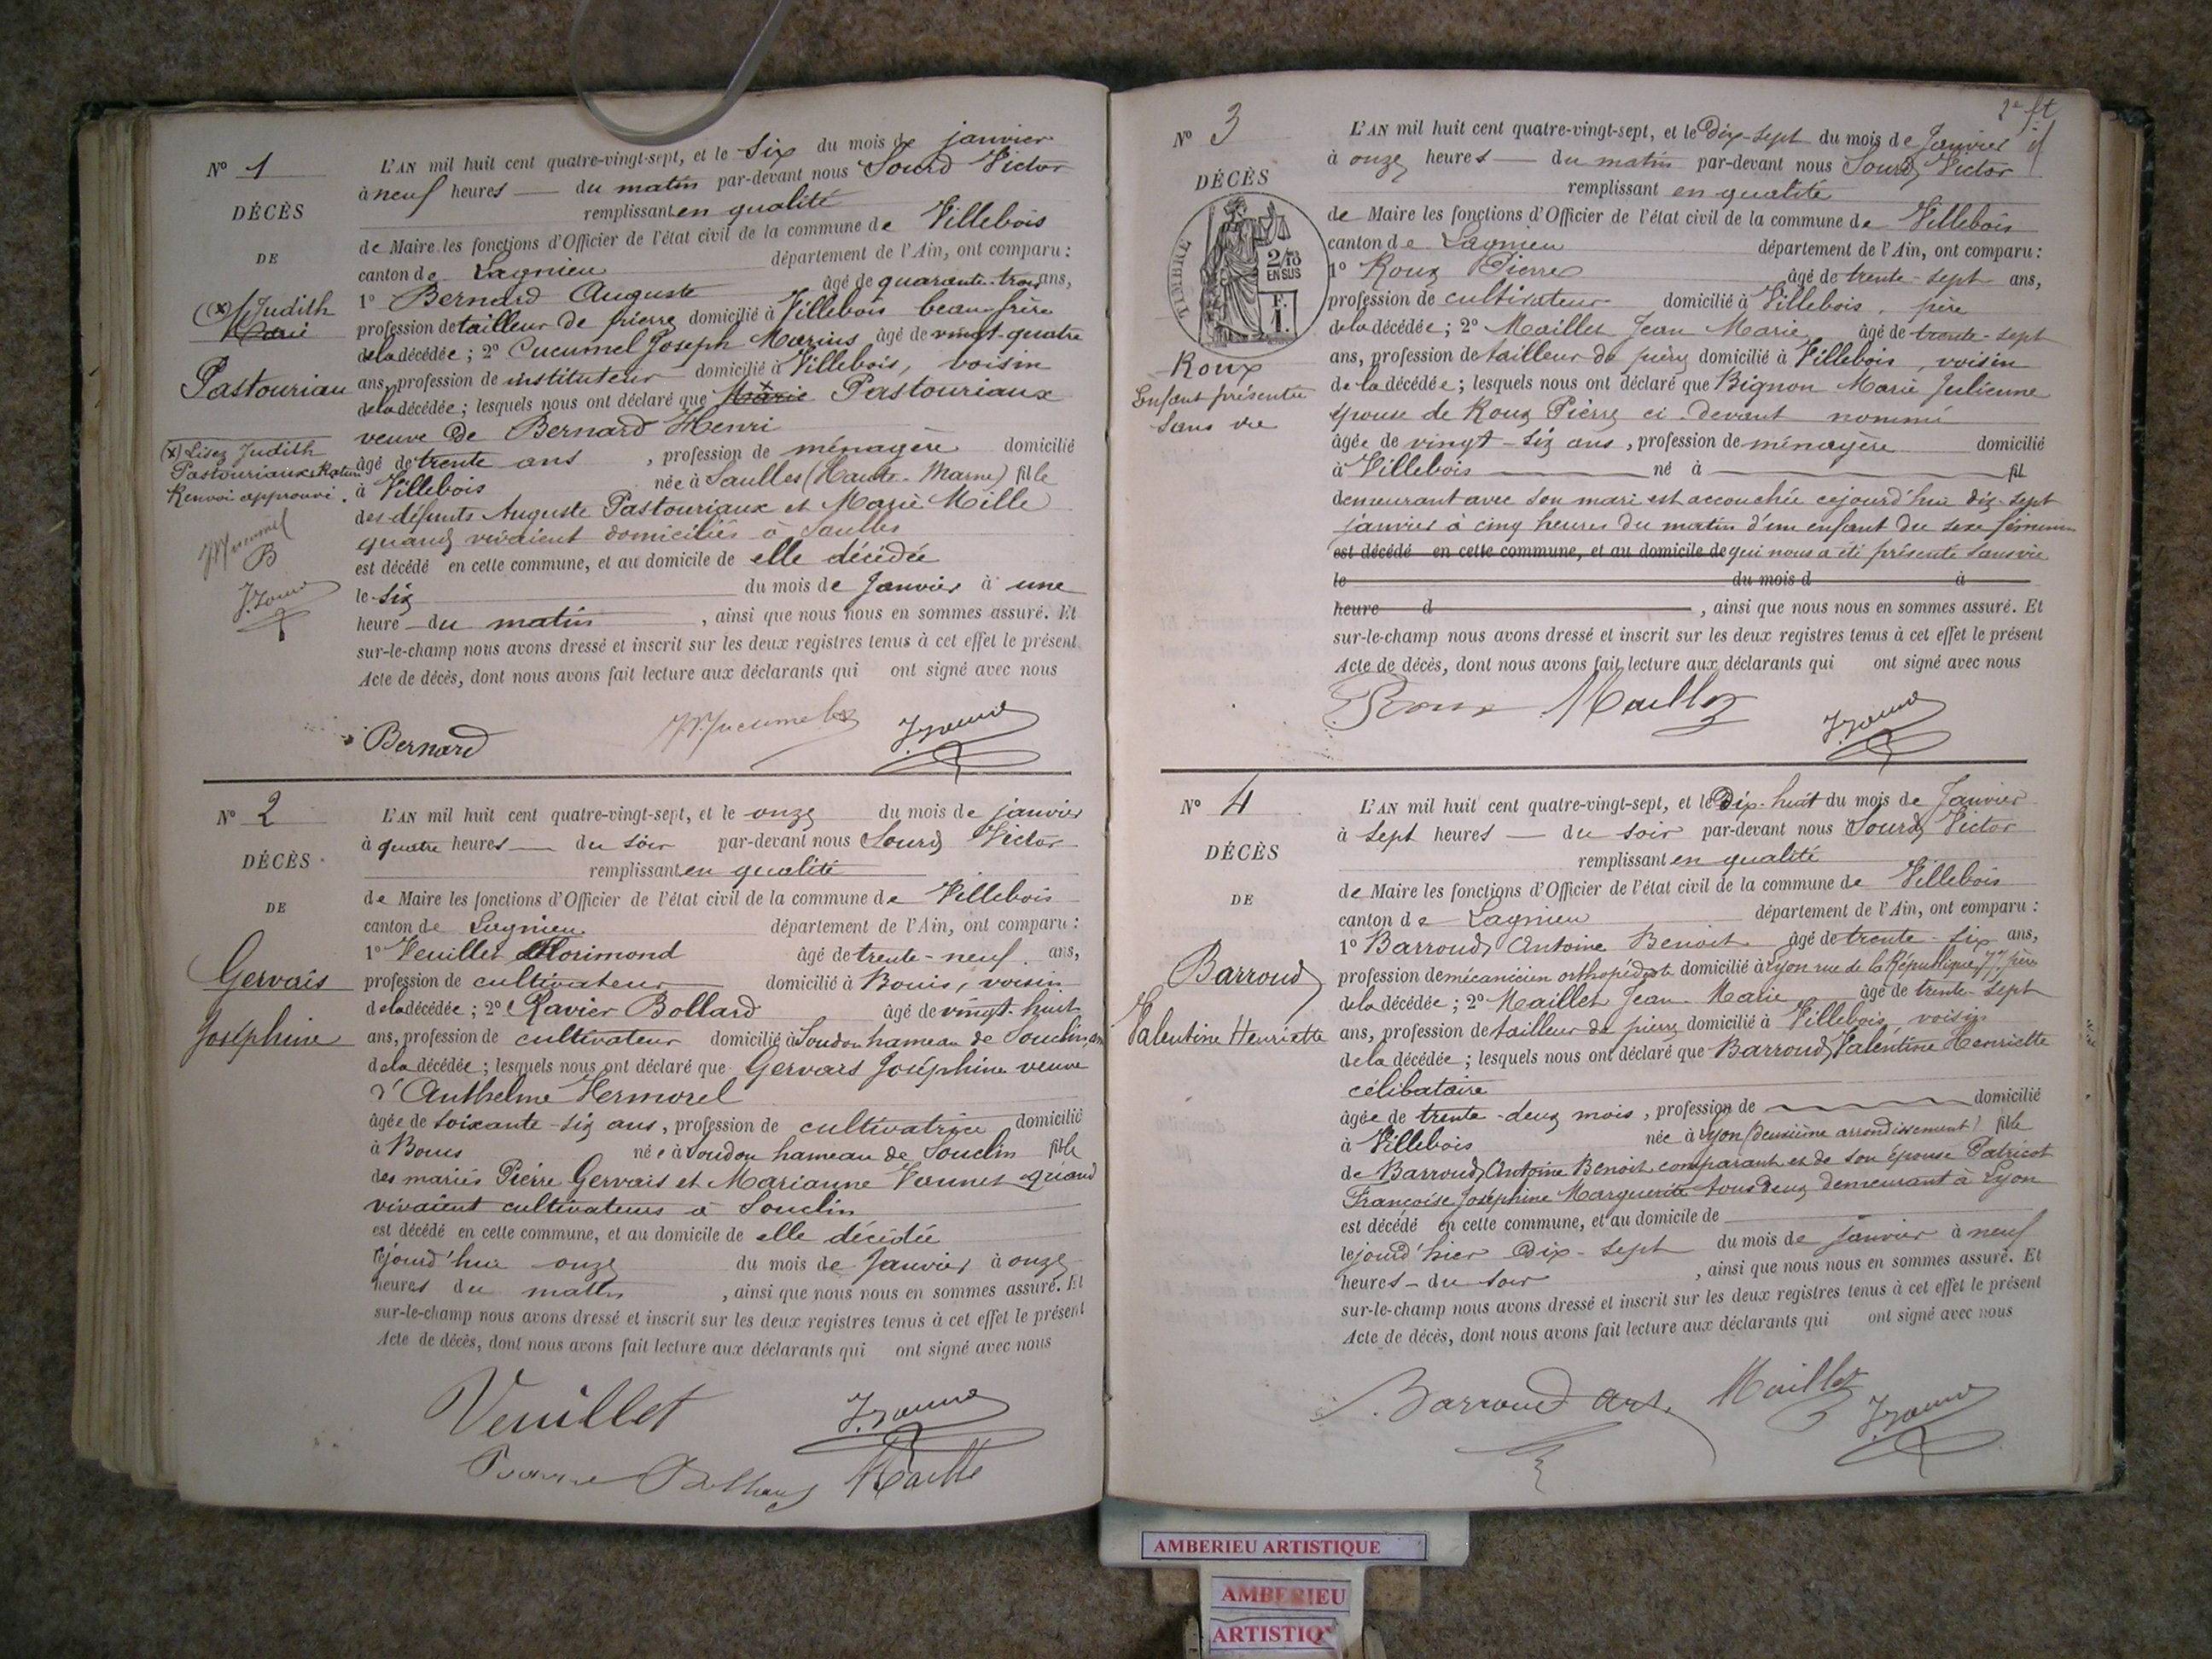 N° 1
DÉCÈS
DE
(x) Judith
Marie
Pastouriau
(x) Lisez Judith
Pastouriaux
Renvoi approuvé.
B
L'AN mil huit cent quatre-vingt-sept, et le Six du mois de janvier
à neuf heures — du matin par-devant nous Sourd Victor
remplissant en qualité
de Maire les fonctions d'Officier de l'état civil de la commune de Villebois
canton de Lagnieu département de l'Ain, ont comparu :
1° Bernard Auguste âgé de quarante-trois ans,
profession de tailleur de pierre domicilié à Villebois beau-frère
de la décédée ; 2° Cucumel Joseph Marius âgé de vingt-quatre
ans, profession de instituteur domicilié à Villebois, voisin
de la décédée ; lesquels nous ont déclaré que Marie Pastouriaux
veuve de Bernard Henri
âgé de trente ans , profession de ménagère domicilié
à Villebois née à Saulles (Haute-Marne) fille
des défunts Auguste Pastouriaux et Marie Mille
quand vivaient domiciliés à Saulles
est décédé en cette commune, et au domicile de elle décédée
le six du mois de Janvier à une
heure — du matin , ainsi que nous nous en sommes assuré. Et
sur-le-champ nous avons dressé et inscrit sur les deux registres tenus à cet effet le présent
Acte de décès, dont nous avons fait lecture aux déclarants qui ont signé avec nous
Bernard
N° 2
DÉCÈS
DE
Gervais
Joséphine
L'AN mil huit cent quatre-vingt-sept, et le onze du mois de janvier
à quatre heures — du soir par-devant nous Sourd Victor
remplissant en qualité
de Maire les fonctions d'Officier de l'état civil de la commune de Villebois
canton de Lagnieu département de l'Ain, ont comparu :
1° Veuillet Florimond âgé de trente-neuf ans,
profession de cultivateur domicilié à Bouis, voisin
de la décédée ; 2° Ravier Bollard âgé de vingt-huit
ans, profession de cultivateur domicilié à Soudon hameau de Souclin, ami
de la décédée ; lesquels nous ont déclaré que Gervais Joséphine veuve
d'Anthelme Hermorel
âgée de soixante-six ans, profession de cultivatrice domicilié
à Bouis née à Soudon hameau de Souclin fille
des mariés Pierre Gervais et Marianne Vannet quand
vivaient cultivateurs à Souclin
est décédé en cette commune, et au domicile de elle décédée
cejourd'hui onze du mois de Janvier à onze
heures du matin , ainsi que nous nous en sommes assuré. Et
sur-le-champ nous avons dressé et inscrit sur les deux registres tenus à cet effet le présent
Acte de décès, dont nous avons fait lecture aux déclarants qui ont signé avec nous
Veuillet
N° 3
DÉCÈS
TIMBRE
2/10
EN SUS
F.
1.
Roux
Enfant présentée
sans vie
2e ft
L'AN mil huit cent quatre-vingt-sept, et le Dix-sept du mois de Janvier
à onze heures — du matin par-devant nous Sourd Victor
remplissant en qualité
de Maire les fonctions d'Officier de l'état civil de la commune de Villebois
canton de Lagnieu département de l'Ain, ont comparu :
1° Roux Pierre âgé de trente-sept ans,
profession de cultivateur domicilié à Villebois, père
de la décédée ; 2° Maillet Jean Marie âgé de trente-sept
ans, profession de tailleur de pierre domicilié à Villebois, voisin
de la décédée ; lesquels nous ont déclaré que Bignon Marie Julienne
épouse de Roux Pierre ci-devant nommé
âgée de vingt-six ans, profession de ménagère domicilié
à Villebois né à fil
demeurant avec son mari est accouchée cejourd'hui dix-sept
janvier à cinq heures du matin d'un enfant du sexe féminin
est décédé en cette commune, et au domicile de qui nous a été présenté sans vie
le du mois d à
heure d , ainsi que nous nous en sommes assuré. Et
sur-le-champ nous avons dressé et inscrit sur les deux registres tenus à cet effet le présent
Acte de décès, dont nous avons fait lecture aux déclarants qui ont signé avec nous
Roux Maillet
N° 4
DÉCÈS
DE
Barroud
Valentine Henriette
L'AN mil huit cent quatre-vingt-sept, et le Dix-huit du mois de Janvier
à sept heures — du soir par-devant nous Sourd Victor
remplissant en qualité
de Maire les fonctions d'Officier de l'état civil de la commune de Villebois
canton de Lagnieu département de l'Ain, ont comparu :
1° Barroud Antoine Benoit âgé de trente-six ans,
profession de mécanicien orthopédiste domicilié à Lyon rue de la République, 77, père
de la décédée ; 2° Maillet Jean-Marie âgé de trente-sept
ans, profession de tailleur de pierre domicilié à Villebois, voisin
de la décédée ; lesquels nous ont déclaré que Barroud Valentine Henriette
célibataire
âgée de trente-deux mois, profession de domicilié
à Villebois née à Lyon (deuxième arrondissement) fille
de Barroud Antoine Benoit comparant et de son épouse Patricot
Françoise Joséphine Marguerite tous deux demeurant à Lyon
est décédé en cette commune, et au domicile de
le jourd'hier Dix-sept du mois de janvier à neuf
heures — du soir , ainsi que nous nous en sommes assuré. Et
sur-le-champ nous avons dressé et inscrit sur les deux registres tenus à cet effet le présent
Acte de décès, dont nous avons fait lecture aux déclarants qui ont signé avec nous
Barroud Ant. Maillet
AMBERIEU ARTISTIQUE
AMBERIEU
ARTISTIQ